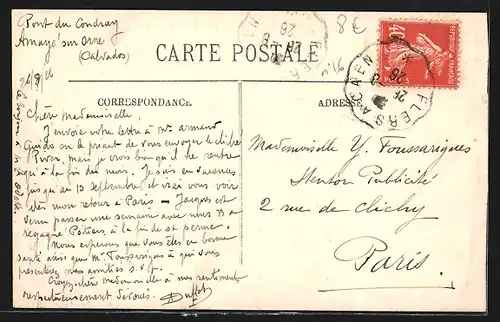 Pont du Coudray
Amayé sur Orne
(Calvados)
8€
CARTE POSTALE
40c
FLERS A CAEN
CORRESPONDANCE
ADRESSE
Chère Mademoiselle,
J'envoie votre lettre à Mr Armand
Guido en le priant de vous envoyer le cliché
River, mais je crois bien qu'il ne rentre
qu'à la fin du mois. Je suis en vacances
jusqu'au 10 septembre et irai vous voir
dès mon retour à Paris — Jacques est
venu passer une semaine avec nous et a
regagné Poitiers à la fin de sa perme.
Nous espérons que vous êtes en bonne
santé ainsi que Mr Toussarigues à qui vous
présenterez mes amitiés s.v.p.
Croyez, chère Mademoiselle à mes sentiments
respectueusement dévoués.
Mademoiselle Y. Foussarigues
Publicité
2 rue de Clichy
Paris.